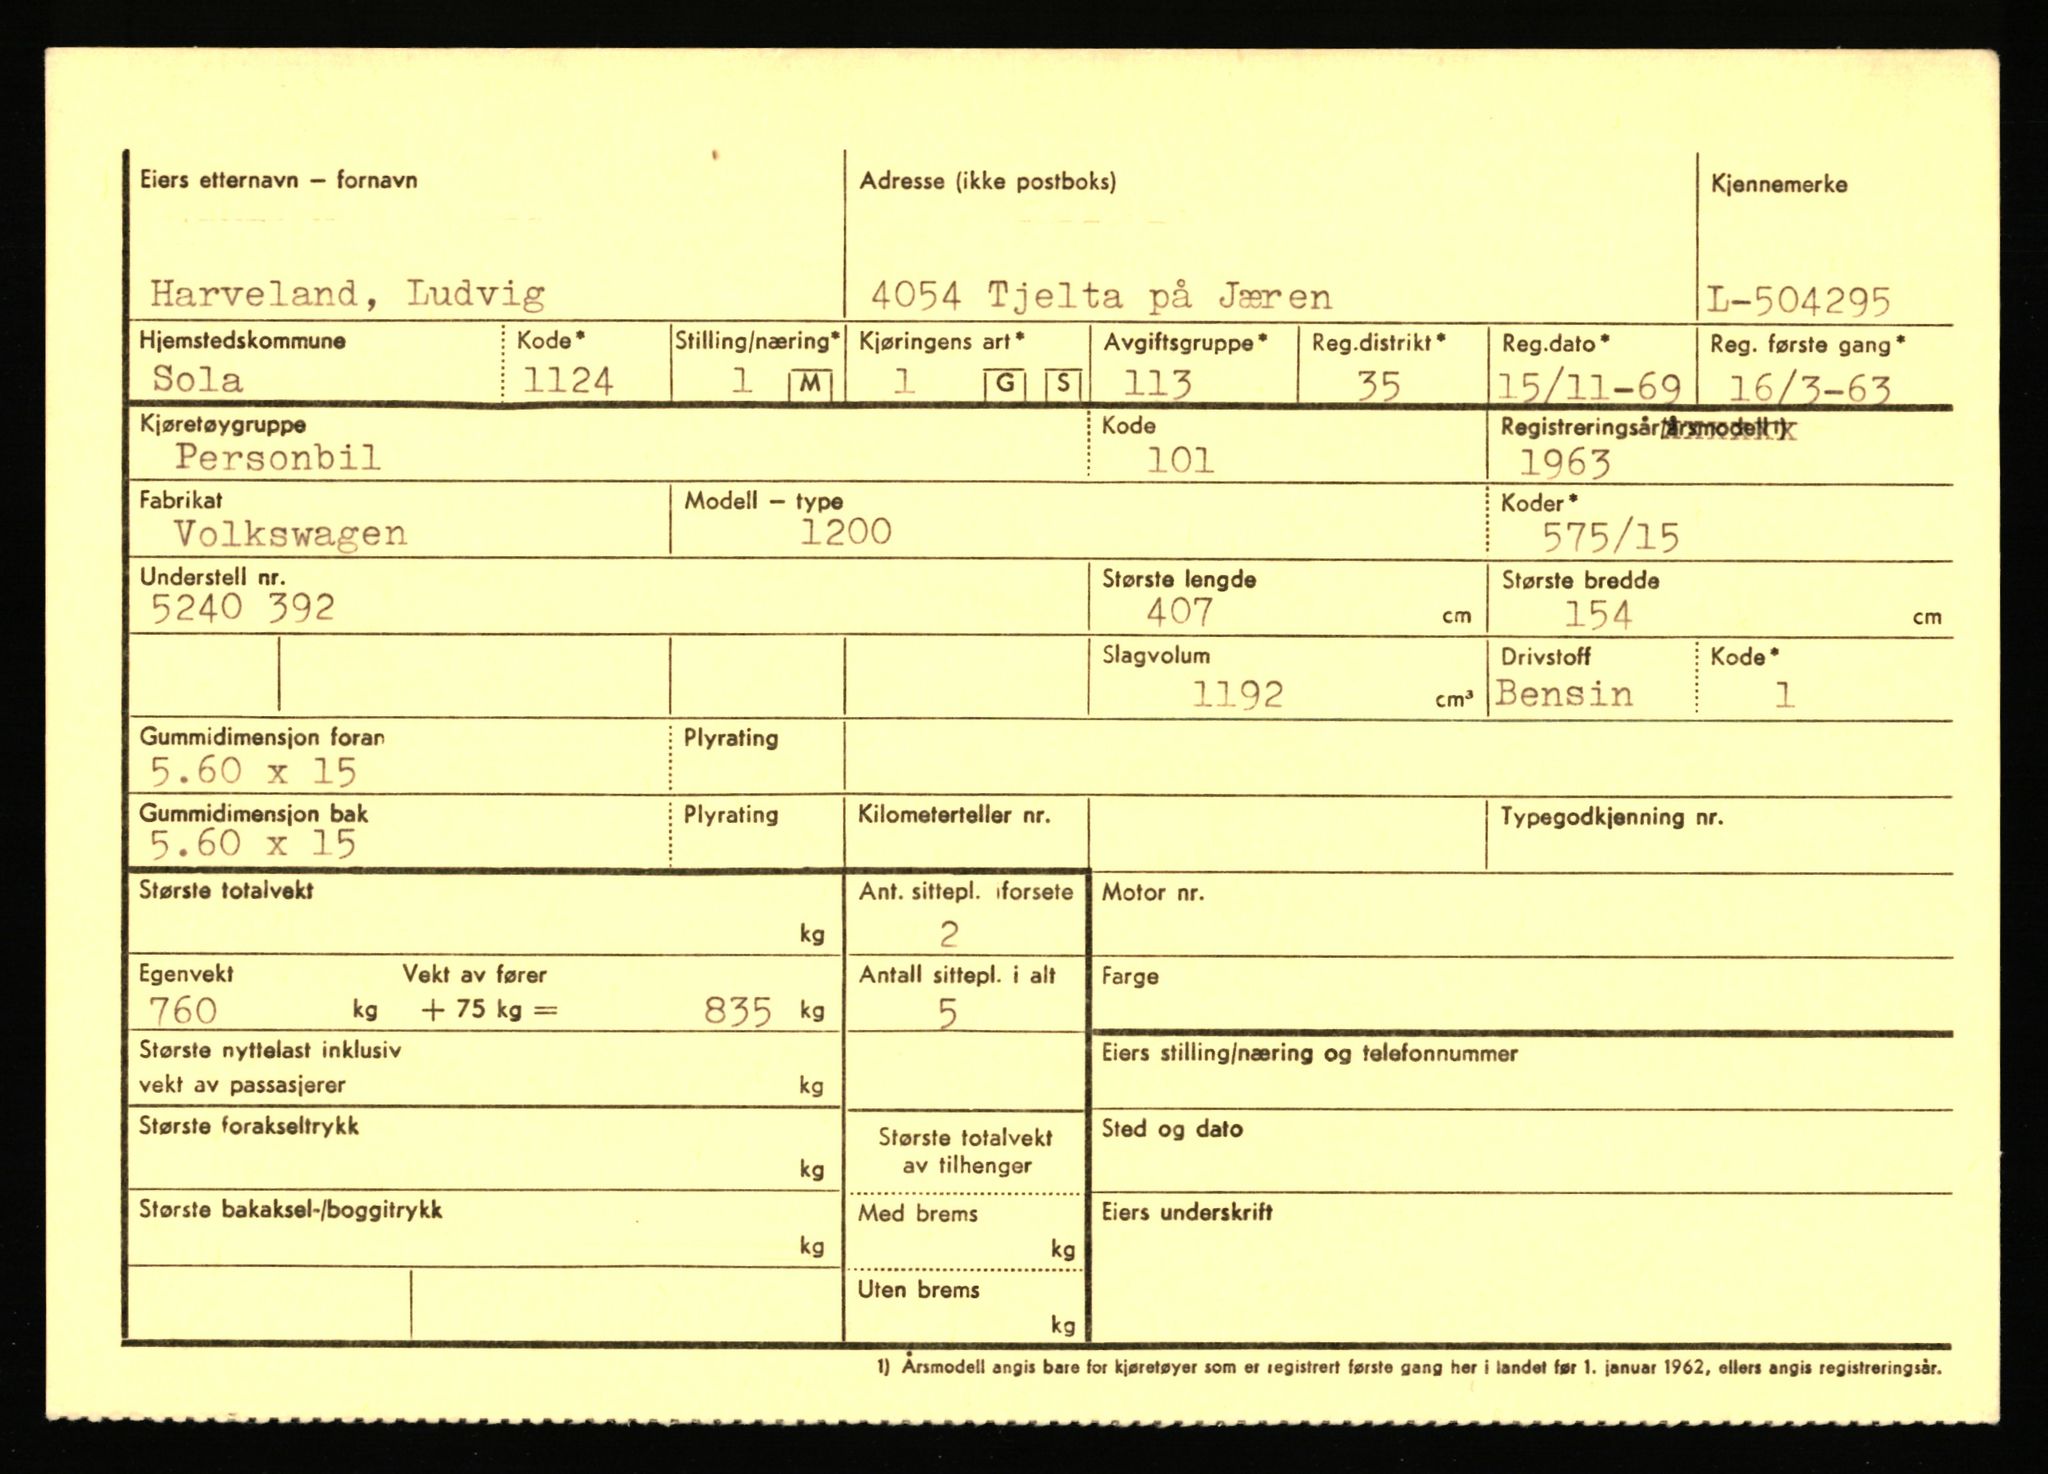 Eiers etternavn – fornavn
Adresse (ikke postboks)
Kjennemerke
Harveland, Ludvig
4054 Tjelta på Jæren
L-504295
Hjemstedskommune Kode* Stilling/næring* Kjøringens art* Avgiftsgruppe* Reg.distrikt* Reg.dato* Reg. første gang*
Sola 1124 1 M 1 G S 113 35 15/11-69 16/3-63
Kjøretøygruppe Kode Registreringsår/årsmodell 1)
Personbil 101 1963
Fabrikat Modell – type Koder*
Volkswagen 1200 575/15
Understell nr. Største lengde Største bredde
5240 392 407 cm 154 cm
Slagvolum Drivstoff Kode*
1192 cm³ Bensin 1
Gummidimensjon foran Plyrating
5.60 x 15
Gummidimensjon bak Plyrating Kilometerteller nr. Typegodkjenning nr.
5.60 x 15
Største totalvekt Ant. sittepl. iforsete Motor nr.
kg 2
Egenvekt Vekt av fører Antall sittepl. i alt Farge
760 kg + 75 kg = 835 kg 5
Største nyttelast inklusiv Eiers stilling/næring og telefonnummer
vekt av passasjerer kg
Største forakseltrykk Største totalvekt Sted og dato
kg av tilhenger
Største bakaksel-/boggitrykk Med brems Eiers underskrift
kg kg
Uten brems
kg
1) Årsmodell angis bare for kjøretøyer som er registrert første gang her i landet før 1. januar 1962, ellers angis registreringsår.